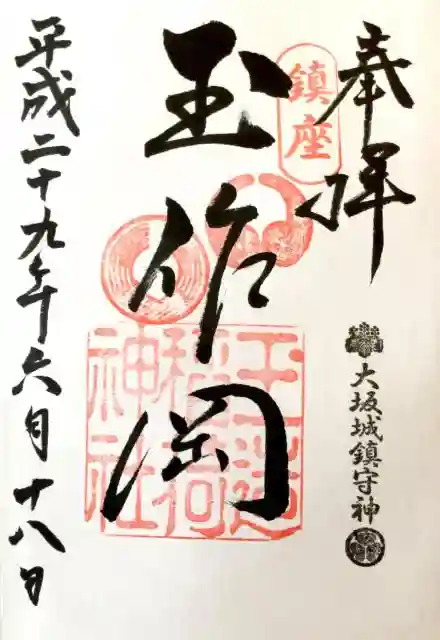 奉拝
大坂城鎮守神
鎮座
玉作岡
玉造
稲荷
神社
平成二十九年六月十八日